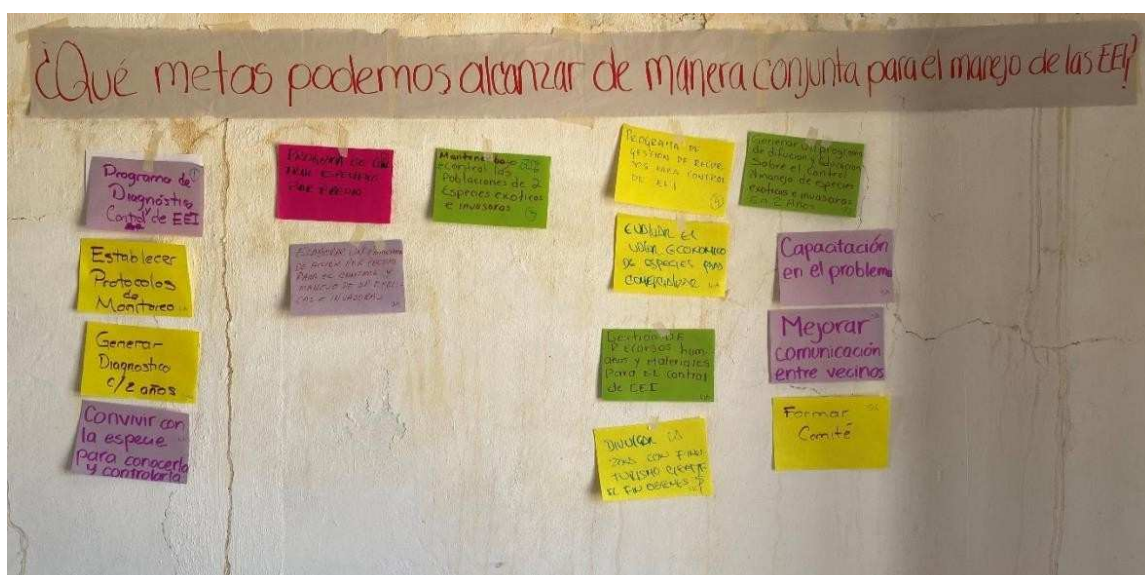 ¿Qué metas podemos alcanzar de manera conjunta para el manejo de las EEI?
Programa de
Diagnóstico y
Control de EEI
Establecer
Protocolos
de
Monitoreo
Generar
Diagnostico
c/2 años
Convivir con
la especie
para conocerla
y controlarla
PROGRAMA DE
ESPECIES
PARA EL CONTROL Y
MANEJO DE
E INVASORAS
Mantener bajo
control las
Poblaciones de 2
Especies exoticas
e invasoras
PROGRAMA DE
GESTIÓN DE RECUR
SOS PARA CONTROL
DE EEI
EVALUAR EL
VALOR ECONOMICO
DE ESPECIES PARA
COMERCIALIZAR
Gestion DE
Recursos hum
anos y Materiales
Para el control
de EEI
DIVULGAR LA
CON FINES
TURISMO
EL FIN
Generar un programa
de difusion y educacion
Sobre el control
manejo de especies
exoticas e invasoras
En 2 Años
Capacitación
en el problema
Mejorar
comunicación
entre vecinos
Formar
Comité